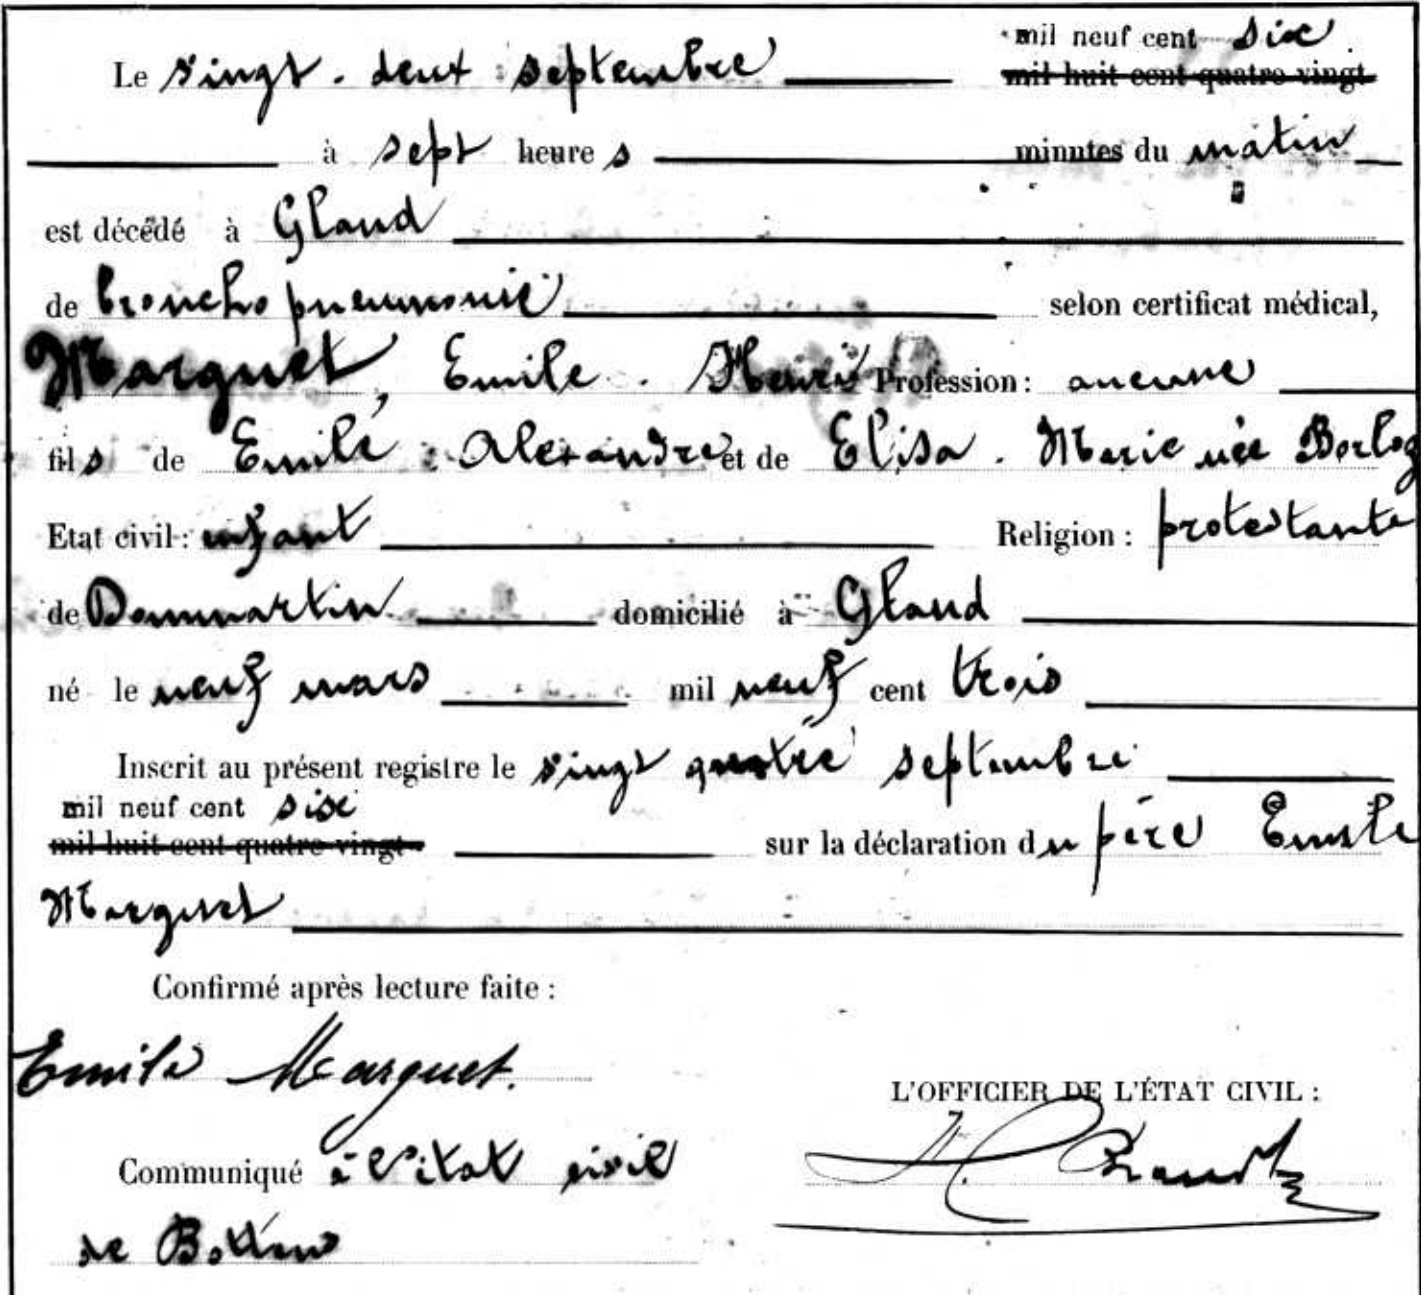 Le vingt-deux septembre mil neuf cent six
mil huit cent quatre vingt
à sept heures minutes du matin
est décédé à Gland
de broncho pneumonie selon certificat médical,
Marguet, Emile-Henri Profession: aucune
fils de Emile-Alexandre et de Elisa-Marie née Borloz
Etat civil: enfant Religion: protestante
de Dommartin domicilié à Gland
né le neuf mars mil neuf cent trois
Inscrit au présent registre le vingt quatre septembre
mil neuf cent six
mil huit cent quatre vingt sur la déclaration du père Emile
Marguet
Confirmé après lecture faite:
Emile Marguet.
L'OFFICIER DE L'ÉTAT CIVIL:
Communiqué à l'état civil
de Bottens